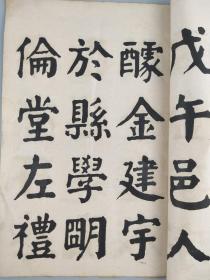 戊午邑人
醵金建宇
於縣學眀
倫堂左禮